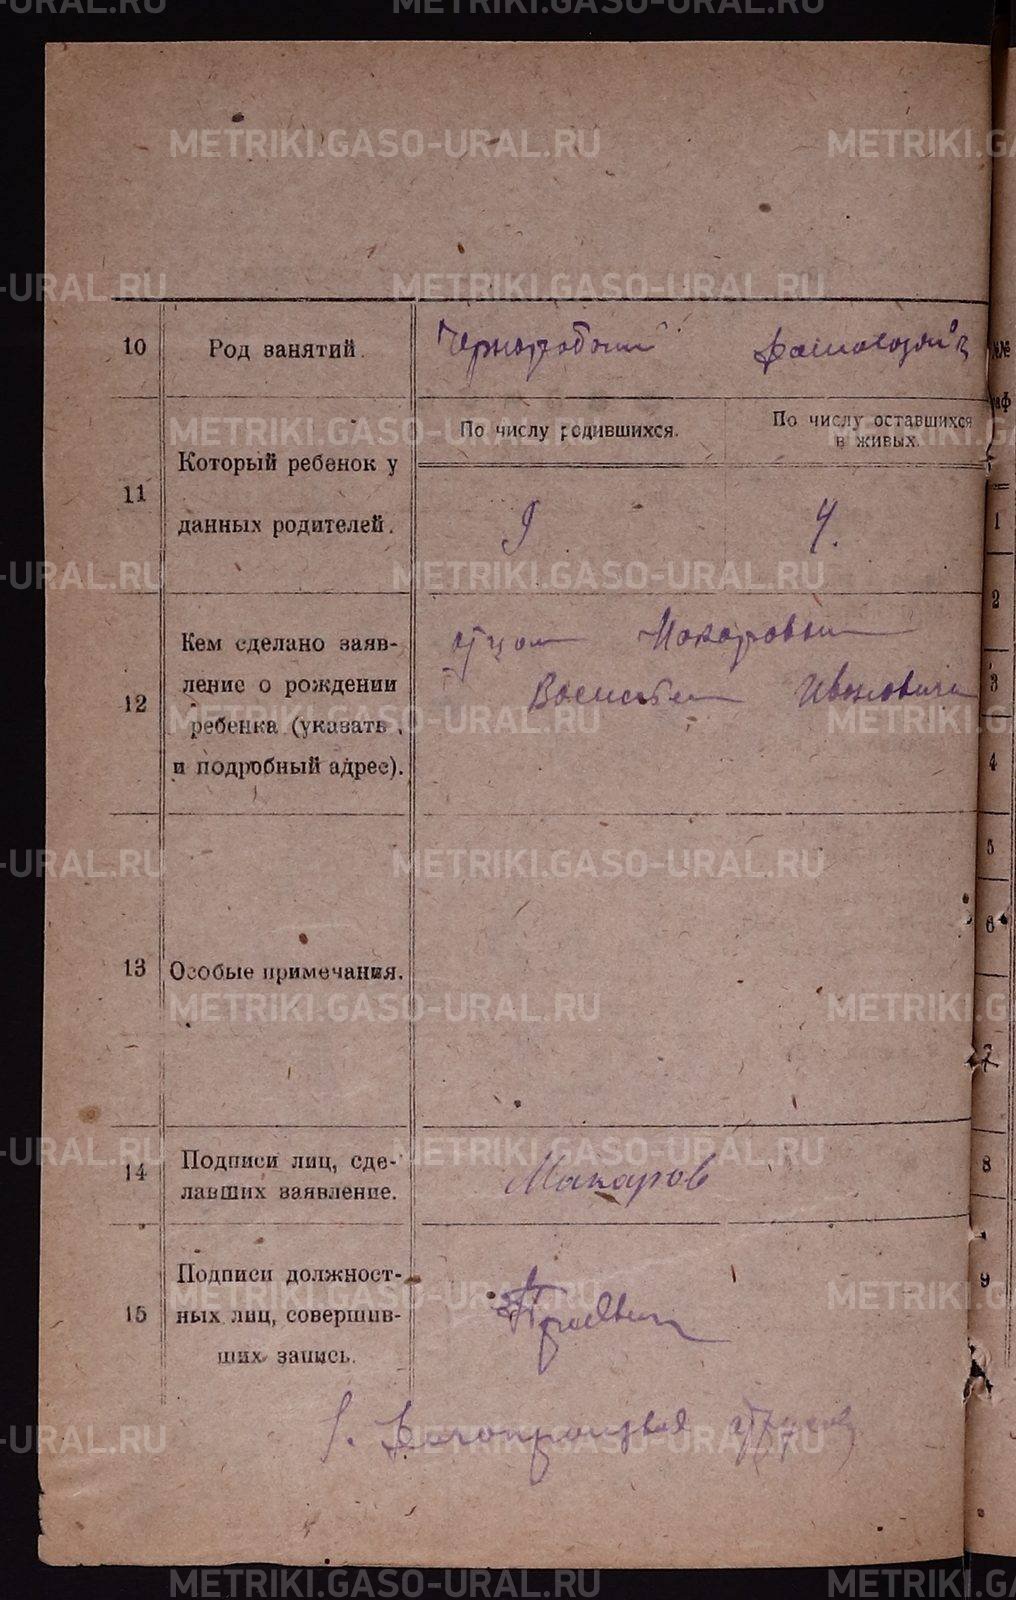 METRIKI.GASO-URAL.RU
10 Род занятий. Чернорабочий Домохозяйка
По числу родившихся. По числу оставшихся в живых.
11 Который ребенок у данных родителей. 9 4.
12 Кем сделано заяв-
ление о рождении
ребенка (указать
и подробный адрес).
отцом Макаровым
Василием Ивановичем
13 Особые примечания.
14 Подписи лиц, сде-
лавших заявление.
Макаров
15 Подписи должност-
ных лиц, совершив-
ших запись.
№№
1
2
3
4
5
6
7
8
9